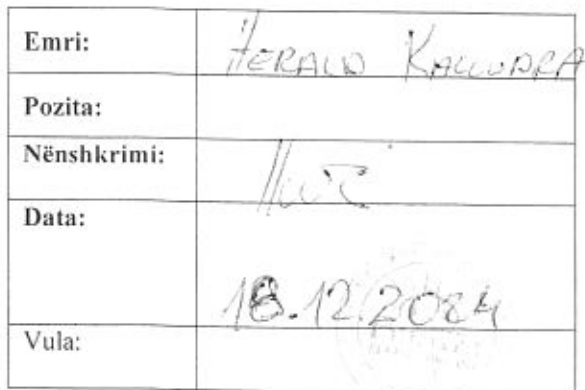 Emri: HERALD KALLUDRA
Pozita:
Nënshkrimi:
Data:
18.12.2024
Vula: